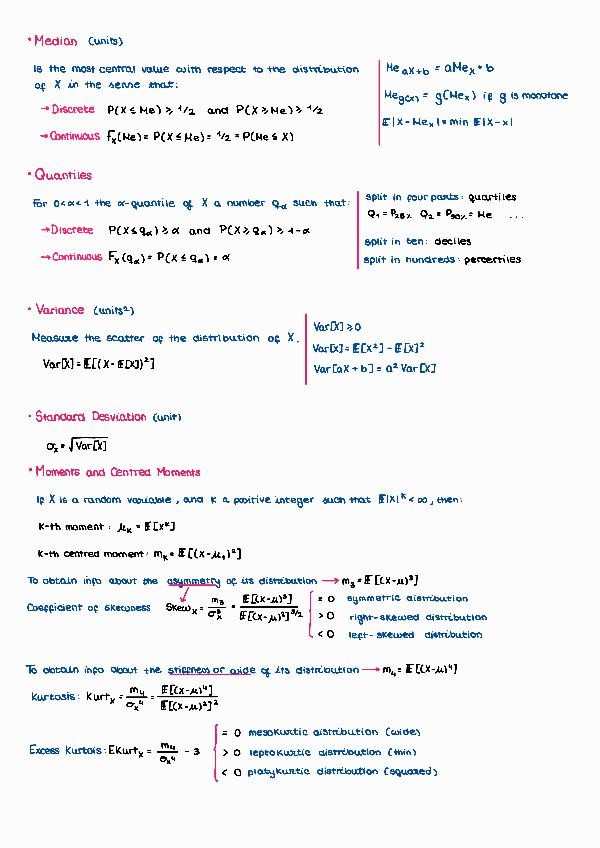 • Median (units)
Is the most central value with respect to the distribution
of X in the sense that:
→ Discrete P(X ≤ Me) ≥ 1/2 and P(X ≥ Me) ≥ 1/2
→ Continuous Fx(Me) = P(X ≤ Me) = 1/2 = P(Me ≤ X)
Me aX+b = aMex + b
Meg(x) = g(Mex) if g is monotone
𝔼|X - Mex| = min 𝔼|X-x|
• Quantiles
For 0<α<1 the α-quantile of X a number qα such that:
→ Discrete P(X ≤ qα) ≥ α and P(X ≥ qα) ≥ 1-α
→ Continuous Fx(qα) = P(X ≤ qα) = α
split in four parts: quartiles
Q1 = P25% Q2 = P50% = Me ...
split in ten: deciles
split in hundreds: percentiles
• Variance (units²)
Measure the scatter of the distribution of X.
Var[X] = 𝔼[(X - 𝔼[X])²]
Var[X] ≥ 0
Var[X] = 𝔼[X²] - 𝔼[X]²
Var[aX + b] = a² Var[X]
• Standard Desviation (unit)
σx = √Var[X]
• Moments and Centred Moments
If X is a random variable, and K a positive integer such that 𝔼|X|ᴷ < ∞, then:
K-th moment: μK = 𝔼[Xᴷ]
K-th centred moment: mK = 𝔼[(X-μ1)²]
To obtain info about the asymmetry of its distribution → m3 = 𝔼[(X-μ)³]
Coefficient of skewness Skewx = m3/σx³ = 𝔼[(X-μ)³]/𝔼[(X-μ)²]³/²
= 0 symmetric distribution
> 0 right-skewed distribution
< 0 left-skewed distribution
To obtain info about the stiffness or wide of its distribution → m4 = 𝔼[(X-μ)⁴]
Kurtosis: Kurtx = m4/σx⁴ = 𝔼[(X-μ)⁴]/𝔼[(X-μ)²]²
Excess Kurtois: EKurtx = m4/σx⁴ - 3
= 0 mesokurtic distribution (wide)
> 0 leptokurtic distribution (thin)
< 0 platykurtic distribution (squared)